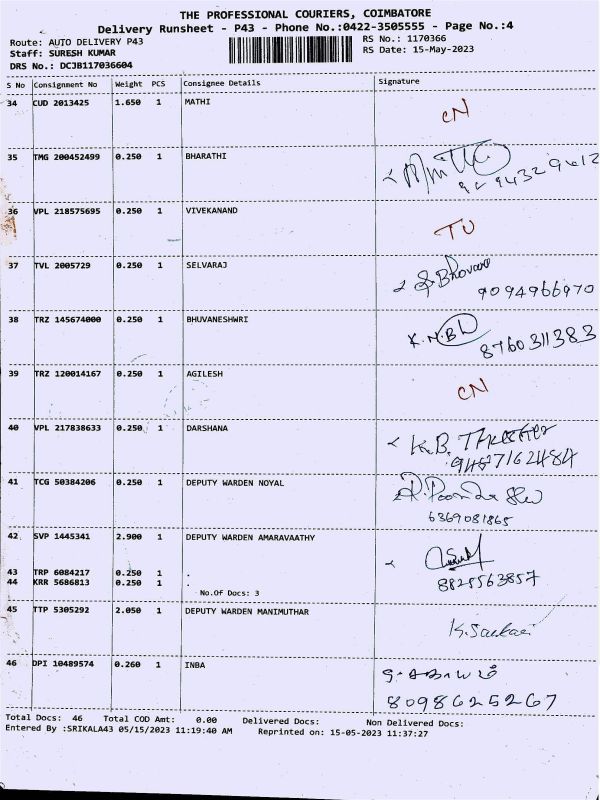 THE PROFESSIONAL COURIERS, COIMBATORE
Delivery Runsheet - P43 - Phone No.:0422-3505555 - Page No.:4
Route: AUTO DELIVERY P43
RS No.: 1170366
Staff: SURESH KUMAR
RS Date: 15-May-2023
DRS No.: DCJB117036604
S No Consignment No Weight PCS Consignee Details Signature
34 CUD 2013425 1.650 1 MATHI CN
35 TMG 200452499 0.250 1 BHARATHI
36 VPL 218575695 0.250 1 VIVEKANAND
37 TVL 2005729 0.250 1 SELVARAJ
9094966970
38 TRZ 145674000 0.250 1 BHUVANESHWRI
8760311383
39 TRZ 120014167 0.250 1 AGILESH CN
40 VPL 217838633 0.250 1 DARSHANA K.B.
41 TCG 50384206 0.250 1 DEPUTY WARDEN NOYAL
6369081865
42 SVP 1445341 2.900 1 DEPUTY WARDEN AMARAVAATHY
43 TRP 6084217 0.250 1 .
44 KRR 5686813 0.250 1 .
8825563857
No.Of Docs: 3
45 TTP 5305292 2.050 1 DEPUTY WARDEN MANIMUTHAR
46 DPI 10489574 0.260 1 INBA
8098625267
Total Docs: 46 Total COD Amt: 0.00 Delivered Docs: Non Delivered Docs:
Entered By :SRIKALA43 05/15/2023 11:19:40 AM Reprinted on: 15-05-2023 11:37:27